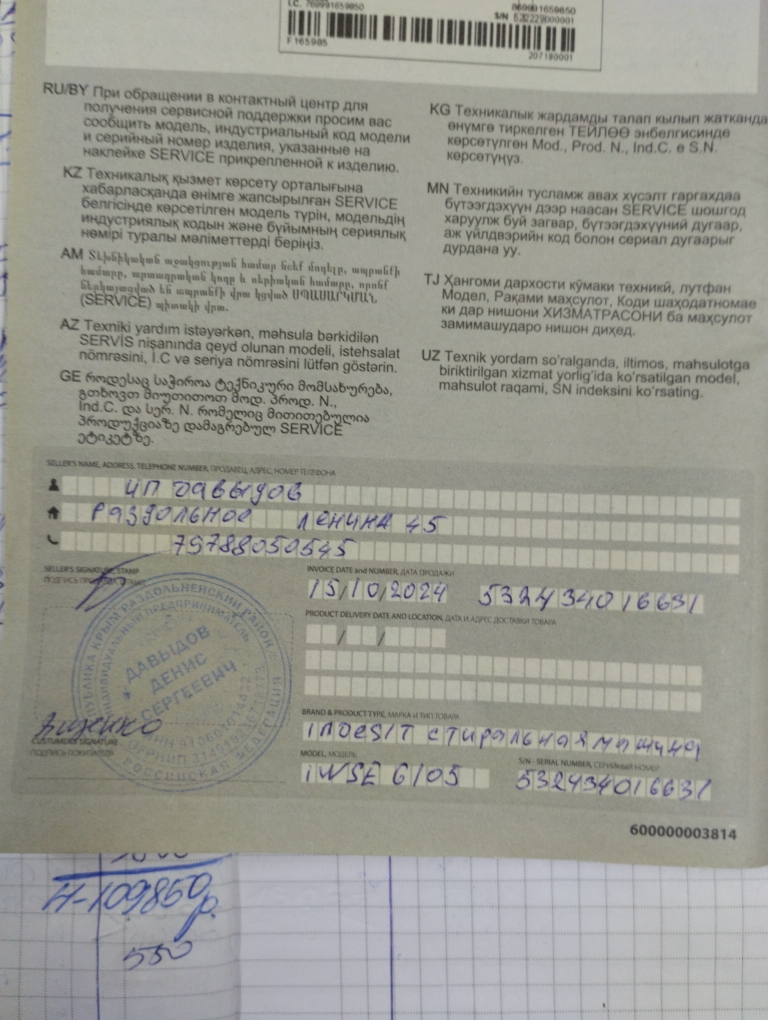 I.C. 769991659850
869991659850
S/N 532229000001
F165985
207180001
RU/BY При обращении в контактный центр для
получения сервисной поддержки просим вас
сообщить модель, индустриальный код модели
и серийный номер изделия, указанные на
наклейке SERVICE прикрепленной к изделию.
KZ Техникалық қызмет көрсету орталығына
хабарласқанда өнімге жапсырылған SERVICE
белгісінде көрсетілген модель түрін, модельдің
индустриялық кодын және бұйымның сериялық
нөмірі туралы мәліметтерді беріңіз.
AM Տեխնիկական աջակցության համար նշեք մոդելը, ապրանքի
համարը, արտադրական կոդը և սերիական համարը, որոնք
ներկայացված են ապրանքի վրա կցված ՍՊԱՍԱՐԿՄԱՆ
(SERVICE) պիտակի վրա.
AZ Texniki yardım istəyərkən, məhsula bərkidilən
SERVİS nişanında qeyd olunan modeli, istehsalat
nömrəsini, I.C və seriya nömrəsini lütfən göstərin.
GE როდესაც საჭიროა ტექნიკური მომსახურება,
გთხოვთ მიუთითოთ მოდ. პროდ. N.,
Ind.C. და სერ. N. რომელიც მითითებულია
პროდუქციაზე დამაგრებულ SERVICE
ეტიკეტზე.
KG Техникалык жардамды талап кылып жатканда
өнүмгө тиркелген ТЕЙЛӨӨ энбелгисинде
көрсөтүлгөн Mod., Prod. N., Ind.C. e S.N.
көрсөтүңүз.
MN Техникийн тусламж авах хүсэлт гаргахдаа
бүтээгдэхүүн дээр наасан SERVICE шошгод
харуулж буй загвар, бүтээгдэхүүний дугаар,
аж үйлдвэрийн код болон сериал дугаарыг
дурдана уу.
TJ Ҳангоми дархости кӯмаки техникӣ, лутфан
Модел, Рақами маҳсулот, Коди шаҳодатномае
ки дар нишони ХИЗМАТРАСОНИ ба маҳсулот
замимашударо нишон диҳед.
UZ Texnik yordam so'ralganda, iltimos, mahsulotga
biriktirilgan xizmat yorlig'ida ko'rsatilgan model,
mahsulot raqami, SN indeksini ko'rsating.
SELLER'S NAME, ADDRESS, TELEPHONE NUMBER, ПРОДАВЕЦ, АДРЕС, НОМЕР ТЕЛЕФОНА
ИП Давыдов
Раздольное Ленина 45
79788050545
SELLER'S SIGNATURE, STAMP
INVOICE DATE and NUMBER, ДАТА ПРОДАЖИ
15/10/2024 532434016631
PRODUCT DELIVERY DATE AND LOCATION, ДАТА И АДРЕС ДОСТАВКИ ТОВАРА
/ /
РЕСПУБЛИКА КРЫМ РАЗДОЛЬНЕНСКИЙ РАЙОН
ИНДИВИДУАЛЬНЫЙ ПРЕДПРИНИМАТЕЛЬ
ДАВЫДОВ
ДЕНИС
СЕРГЕЕВИЧ
РОССИЙСКАЯ ФЕДЕРАЦИЯ
CUSTOMER SIGNATURE
ПОДПИСЬ ПОКУПАТЕЛЯ
BRAND & PRODUCT TYPE, МАРКА И ТИП ТОВАРА
indesit стиральная машина
MODEL, МОДЕЛЬ
S/N - SERIAL NUMBER, СЕРИЙНЫЙ НОМЕР
iWSE 6105 532434016631
600000003814
Н-109850р.
550